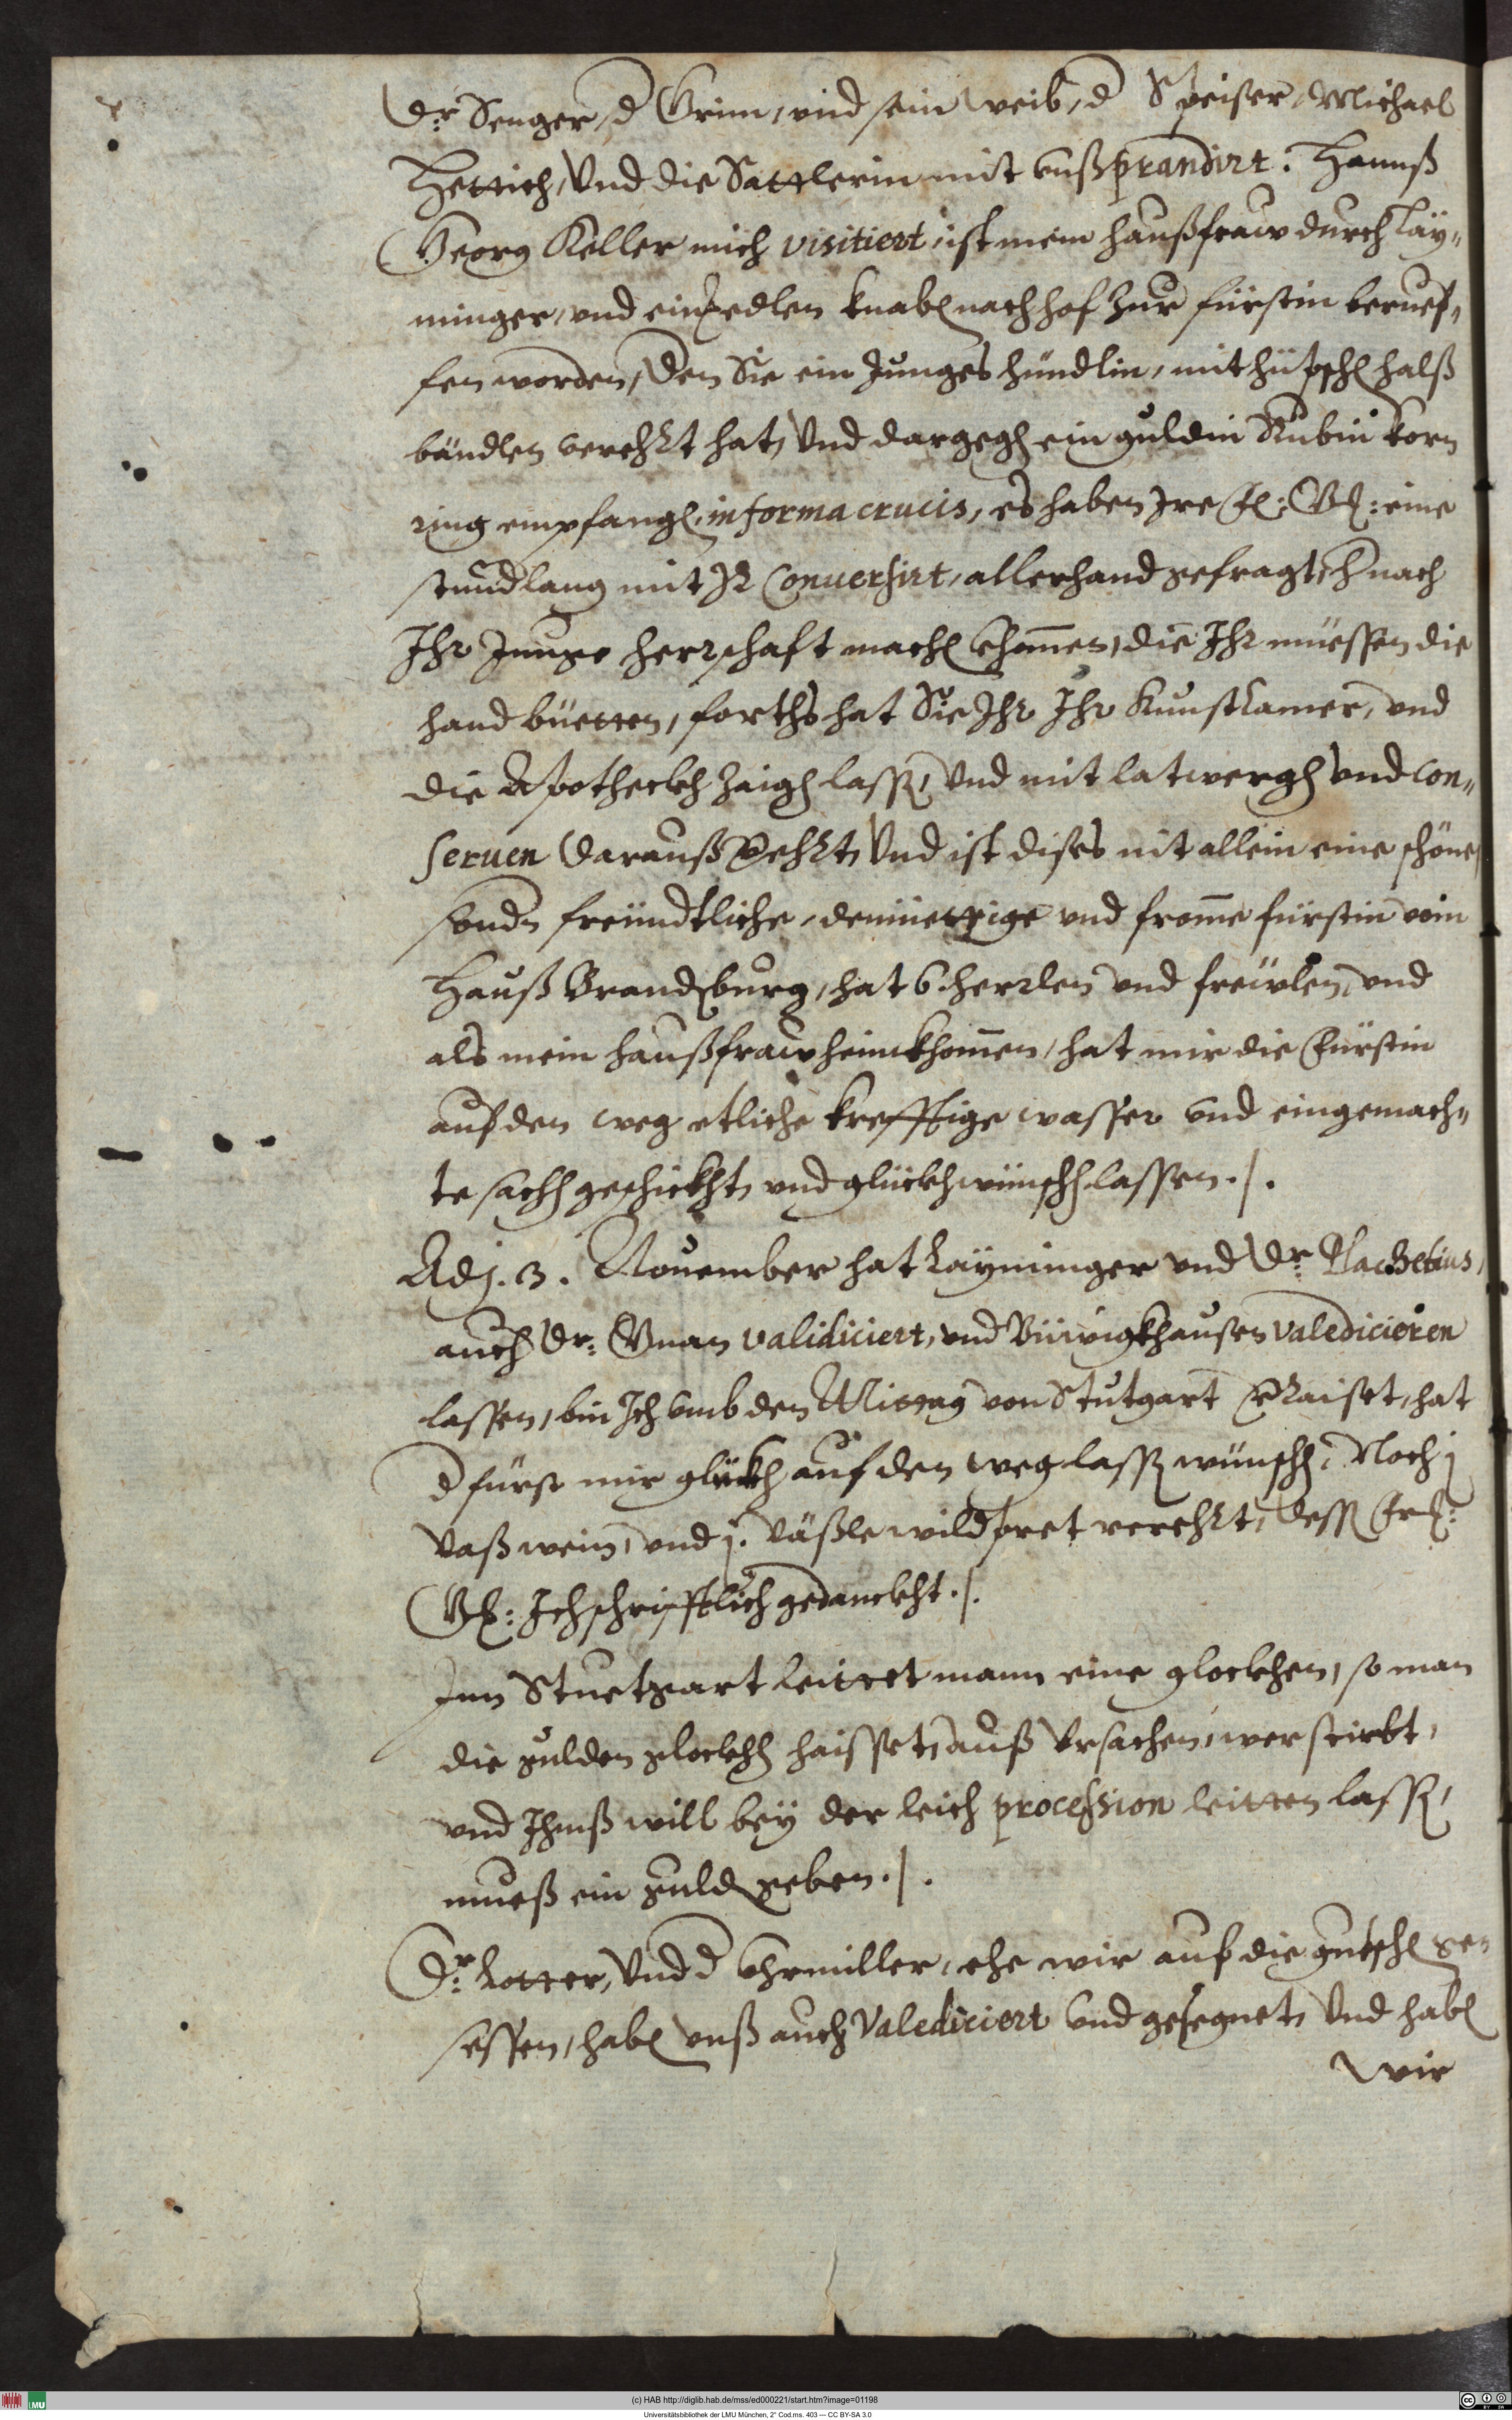 Dr: Senger, d Grim, vnd sein weib, d Speiser, Michael
Hettich, Vnd die Sattlerin mit vnß prandirt. Hannß
Georg Keller mich visitiert, ist mein haußfraw durch Läy„
minger, vnd ein Edlen knaben nach hof zur fürstin beruef„
fen worden, den Sie ein Junges hündlin, mit hüpschen halß
bändlen verehrt hat, Vnd dargegen ein guldin Rubin korn
ring empfangen, in forma crucis, es haben Ire Fl: Gl: eine
stundlang mit Ir Conuersirt, allerhand gefragt, h nach
Ihr Junge herrschaft machen khommen, die Ihr müessen die
hand büetten, forths hat Sie Ihr Ihr Kunstkamer, vnd
die Apotheckh zaigen lassen, Vnd mit latwergen vnd con„
seruen darauß verehrt, Vnd ist dises nit allein eine schöne,
sondern freündtliche, demüettige vnd fromme fürstin vom
Hauß Brandenburg, hat 6 herrlen vnd frewlen, vnd
als mein haußfraw heimkhommen, hat mir die Fürstin
auf den weg etliche krefftige wasser vnd eingemach„
te sachen geschickht, vnd glückh wünschen lassen ./.
Adj. 3. Nouember hat Läyminger vnd Dr: Plachetius,
auch Dr: Gnan validiciert, vnd Büwigkhausen valedicieren
lassen, bin Ich vmb den Mittag von Stutgart verraiset, hat
d fürst mir glückh auf den weg lassen wünschen, Noch j
vaß wein, vnd j. väßle wildpret verehrt, dessen Irl:
Gl: Ich schrifftlich gedanckht ./.
Inn Stuetgart leittet mann eine glockhen, so man
die gulden glockhen haisset, auß Vrsachen, wer stirbt,
vnd Ihmß will bey der leich procession leitten lassen,
mueß ein gulden geben ./.
Dr: Kotter, Vnd d Vhrmiller, ehe wir auf die gutschen ge„
sessen, haben vnß auch Valediciert vnd gesegnet, Vnd haben
wir
(c) HAB http://diglib.hab.de/mss/ed000221/start.htm?image=01198
Universitätsbibliothek der LMU München, 2° Cod.ms. 403 --- CC BY-SA 3.0